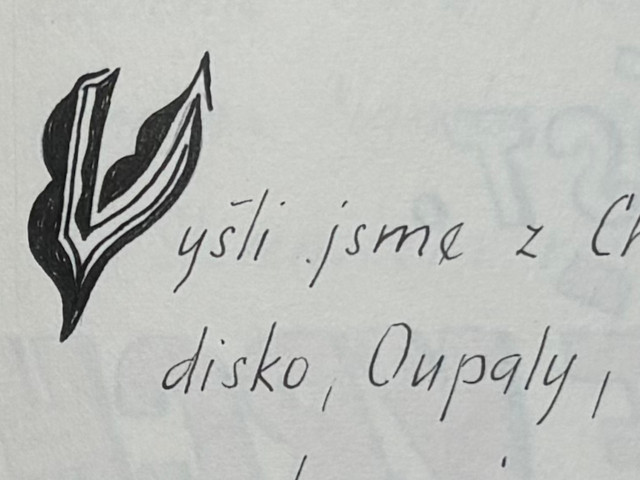 Vyšli jsme z Ch
disko, Oupaly,